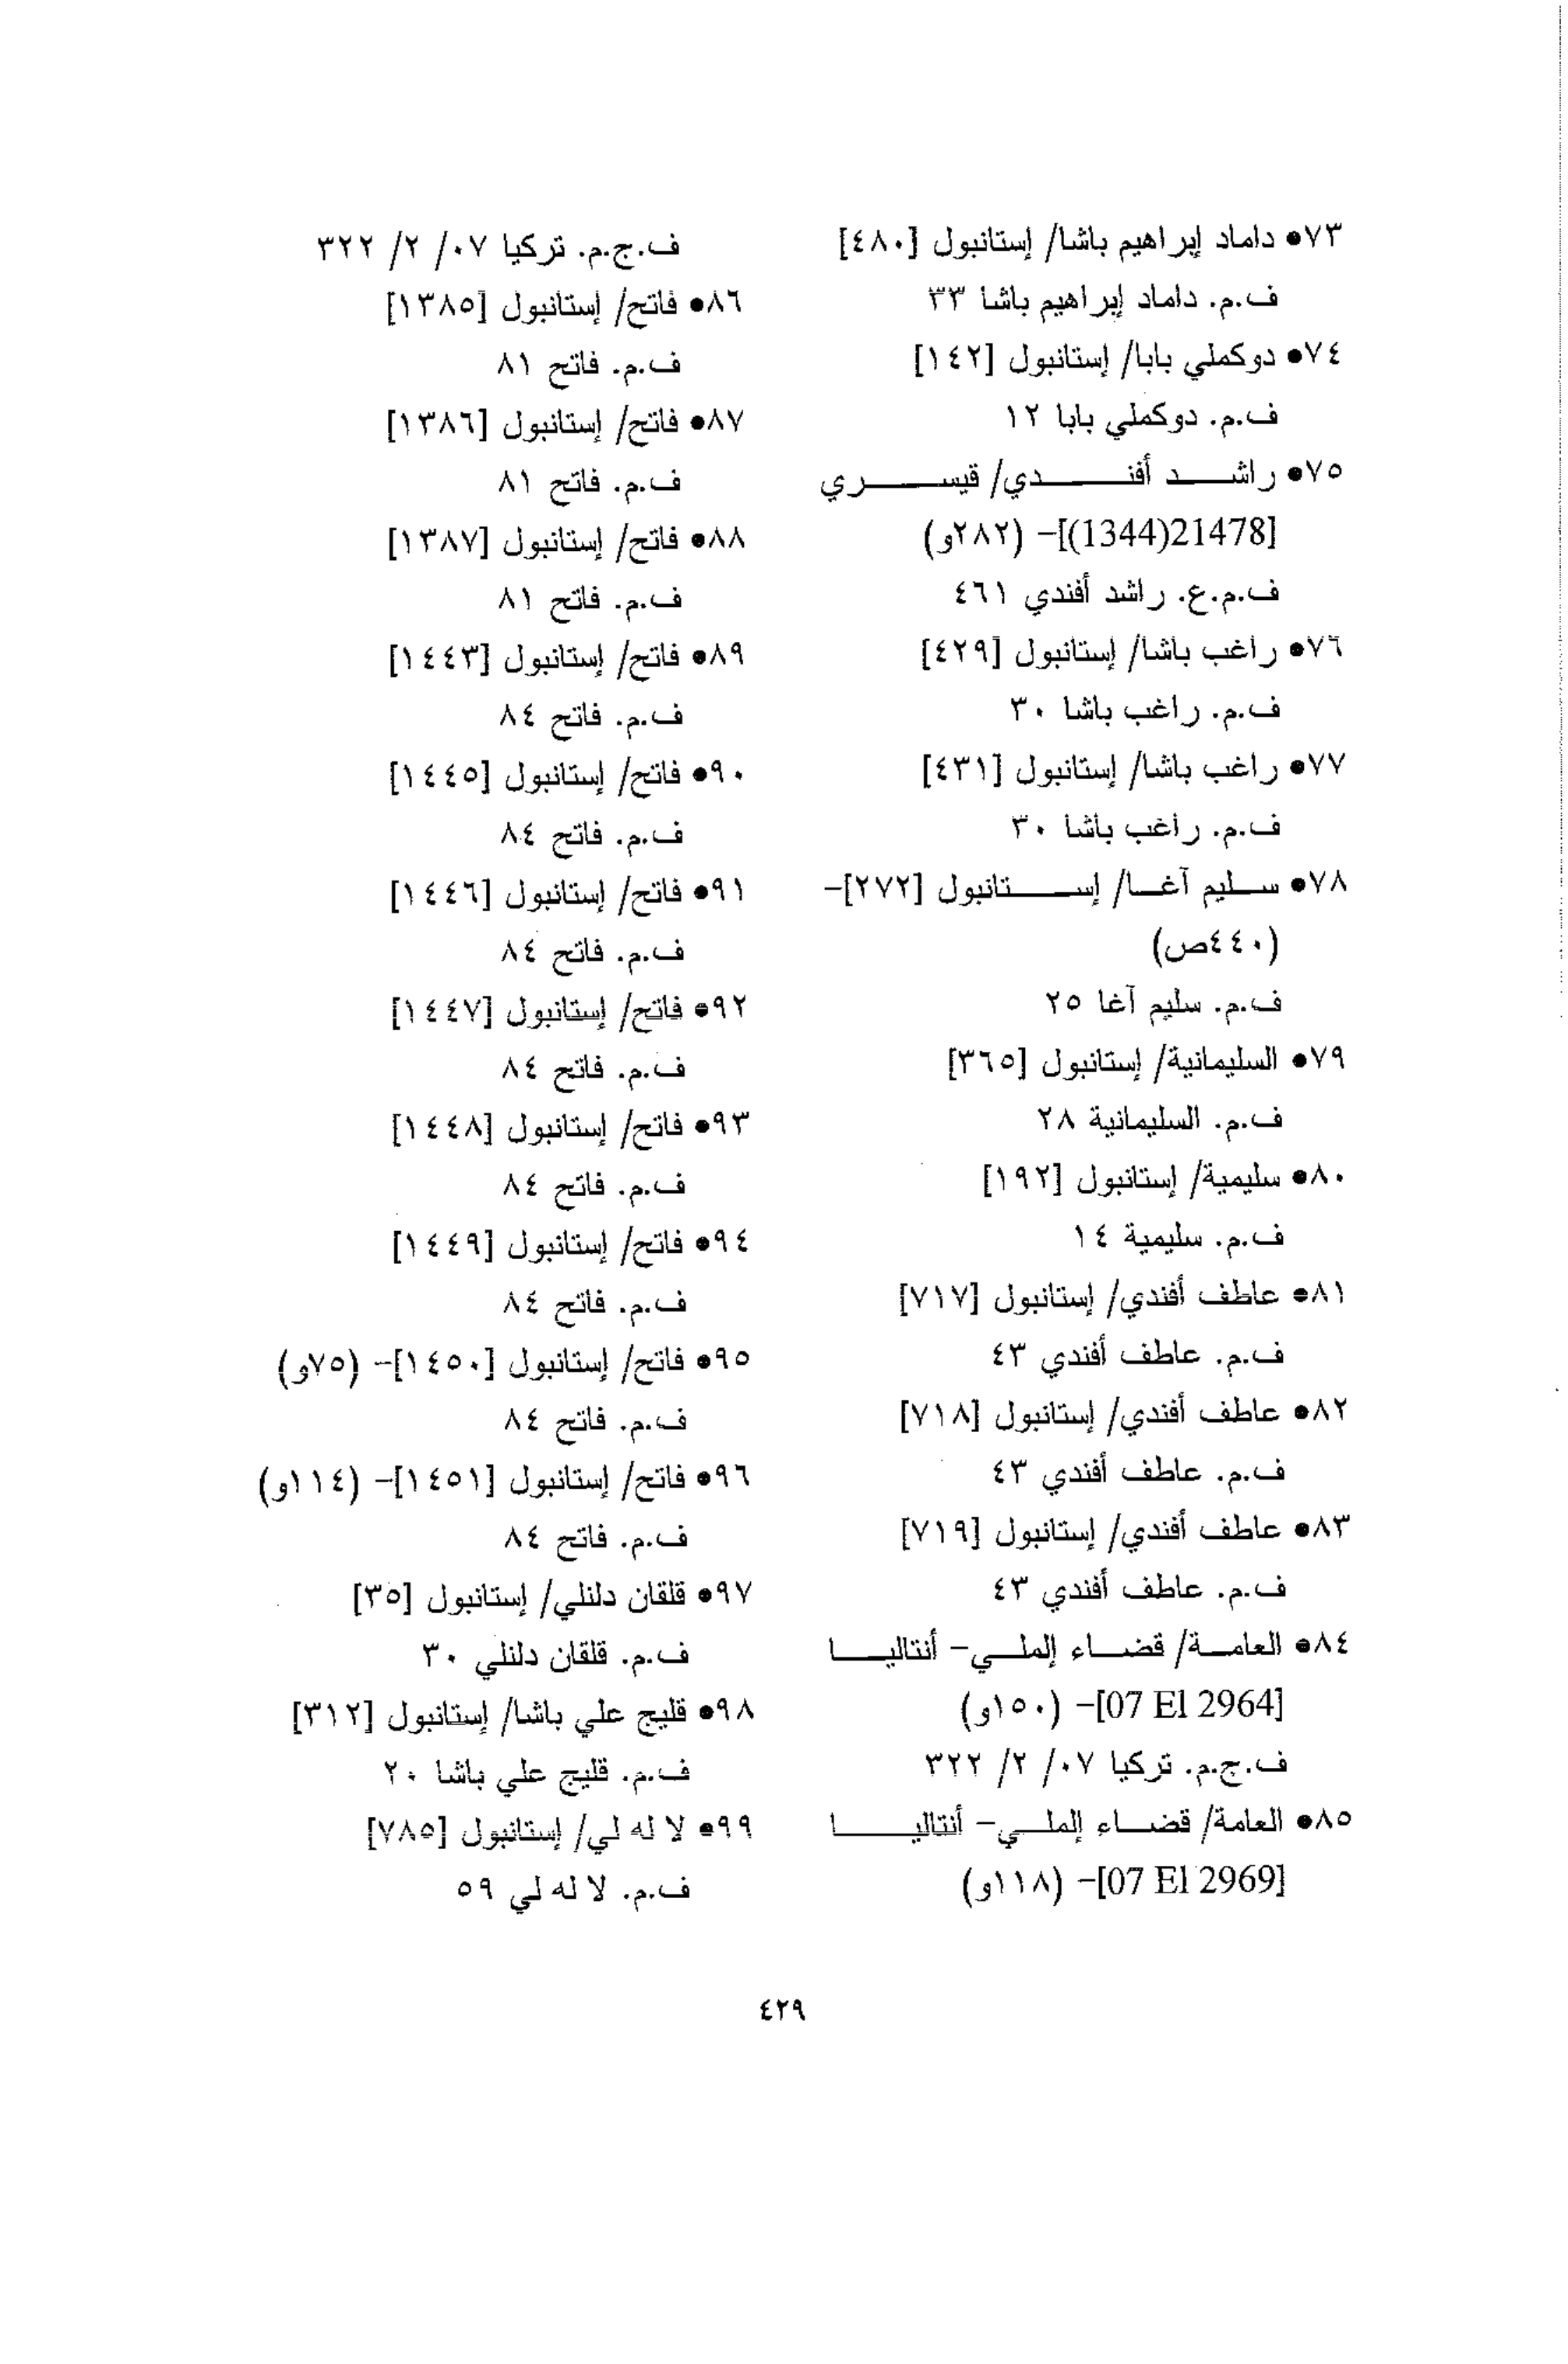 ٧٣● داماد إبراهيم باشا/ إستانبول [٤٨٠]
ف.م. داماد إبراهيم باشا ٣٣
٧٤● دوكملي بابا/ إستانبول [١٤٢]
ف.م. دوكملي بابا ١٢
٧٥● راشد أفندي/ قيسري
[21478(1344)]– (٢٨٢و)
ف.م.ع. راشد أفندي ٤٦١
٧٦● راغب باشا/ إستانبول [٤٢٩]
ف.م. راغب باشا ٣٠
٧٧● راغب باشا/ إستانبول [٤٣١]
ف.م. راغب باشا ٣٠
٧٨● سليم آغا/ إستانبول [٢٧٢]–
(٤٤٠ص)
ف.م. سليم آغا ٢٥
٧٩● السليمانية/ إستانبول [٣٦٥]
ف.م. السليمانية ٢٨
٨٠● سليمية/ إستانبول [١٩٢]
ف.م. سليمية ١٤
٨١● عاطف أفندي/ إستانبول [٧١٧]
ف.م. عاطف أفندي ٤٣
٨٢● عاطف أفندي/ إستانبول [٧١٨]
ف.م. عاطف أفندي ٤٣
٨٣● عاطف أفندي/ إستانبول [٧١٩]
ف.م. عاطف أفندي ٤٣
٨٤● العامة/ قضاء إلملي– أنتاليا
[07 El 2964]– (١٥٠و)
ف.ج.م. تركيا ٠٧/ ٢/ ٣٢٢
٨٥● العامة/ قضاء إلملي– أنتاليا
[07 El 2969]– (١١٨و)
ف.ج.م. تركيا ٠٧/ ٢/ ٣٢٢
٨٦● فاتح/ إستانبول [١٣٨٥]
ف.م. فاتح ٨١
٨٧● فاتح/ إستانبول [١٣٨٦]
ف.م. فاتح ٨١
٨٨● فاتح/ إستانبول [١٣٨٧]
ف.م. فاتح ٨١
٨٩● فاتح/ إستانبول [١٤٤٣]
ف.م. فاتح ٨٤
٩٠● فاتح/ إستانبول [١٤٤٥]
ف.م. فاتح ٨٤
٩١● فاتح/ إستانبول [١٤٤٦]
ف.م. فاتح ٨٤
٩٢● فاتح/ إستانبول [١٤٤٧]
ف.م. فاتح ٨٤
٩٣● فاتح/ إستانبول [١٤٤٨]
ف.م. فاتح ٨٤
٩٤● فاتح/ إستانبول [١٤٤٩]
ف.م. فاتح ٨٤
٩٥● فاتح/ إستانبول [١٤٥٠]– (٧٥و)
ف.م. فاتح ٨٤
٩٦● فاتح/ إستانبول [١٤٥١]– (١١٤و)
ف.م. فاتح ٨٤
٩٧● قلقان دلنلي/ إستانبول [٣٥]
ف.م. قلقان دلنلي ٣٠
٩٨● قليج علي باشا/ إستانبول [٣١٢]
ف.م. قليج علي باشا ٢٠
٩٩● لا له لي/ إستانبول [٧٨٥]
ف.م. لا له لي ٥٩
٤٢٩